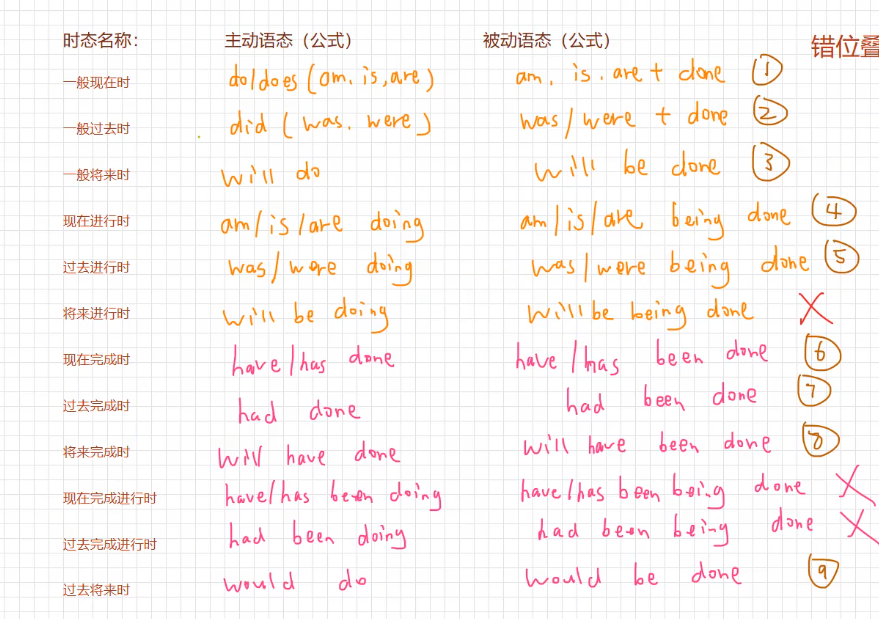 时态名称： 主动语态（公式） 被动语态（公式） 错位叠
一般现在时 do/does (am, is, are) am. is. are + done ①
一般过去时 did (was. were) was/were + done ②
一般将来时 will do will be done ③
现在进行时 am/is/are doing am/is/are being done ④
过去进行时 was/were doing was/were being done ⑤
将来进行时 will be doing will be being done ×
现在完成时 have/has done have/has been done ⑥
过去完成时 had done had been done ⑦
将来完成时 will have done will have been done ⑧
现在完成进行时 have/has been doing have/has been being done ×
过去完成进行时 had been doing had been being done ×
过去将来时 would do would be done ⑨